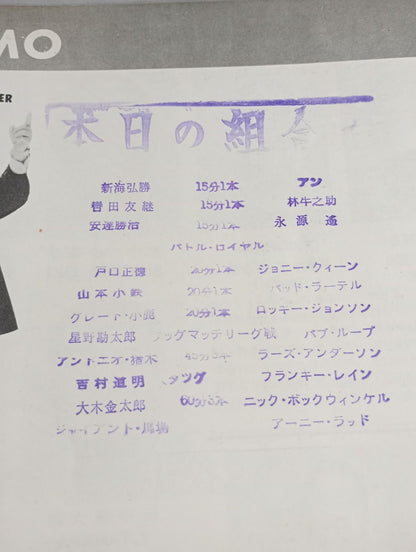 MO
ER
本日の組合
新海弘勝 15分1本 アン
曽田友継 15分1本 林牛之助
安達勝治 15分1本 永源遙
バトル・ロイヤル
戸口正徳 20分1本 ジョニー・クィーン
山本小鉄 20分1本 バッド・ラーテル
グレート・小鹿 20分1本 ロッキー・ジョンソン
星野勘太郎 タッグマッチリーグ戦 バブ・ループ
アントニオ・猪木 45分3本 ラーズ・アンダーソン
吉村道明 タッグ フランキー・レイン
大木金太郎 60分3本 ニック・ボックウィンケル
ジャイアント・馬場 アーニー・ラッド